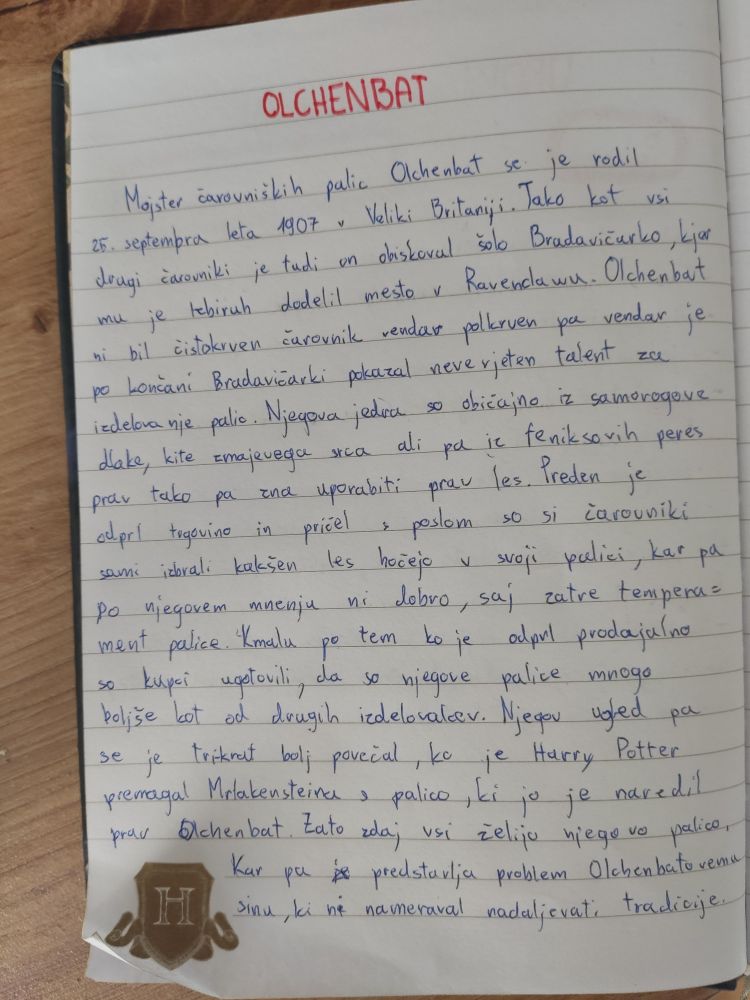 OLCHENBAT
Mojster čarovniških palic Olchenbat se je rodil
25. septembra leta 1907 v Veliki Britaniji. Tako kot vsi
drugi čarovniki je tudi on obiskoval šolo Bradavičarko, kjer
mu je Izbiruh dodelil mesto v Ravenclawu. Olchenbat
ni bil čistokrven čarovnik vendar polkrven pa vendar je
po končani Bradavičarki pokazal neverjeten talent za
izdelovanje palic. Njegova jedra so običajno iz samorogove
dlake, kite zmajevega srca ali pa iz feniksovih peres
prav tako pa zna uporabiti prav les. Preden je
odprl trgovino in pričel s poslom so si čarovniki
sami izbrali kakšen les hočejo v svoji palici, kar pa
po njegovem mnenju ni dobro, saj zatre tempera=
ment palice. Kmalu po tem ko je odprl prodajalno
so kupci ugotovili, da so njegove palice mnogo
boljše kot od drugih izdelovalcev. Njegov ugled pa
se je trikrat bolj povečal, ko je Harry Potter
premagal Mrlakensteina s palico, ki jo je naredil
prav Olchenbat. Zato zdaj vsi želijo njegovo palico.
Kar pa predstavlja problem Olchenbatovemu
sinu, ki ni nameraval nadaljevati tradicije.
H